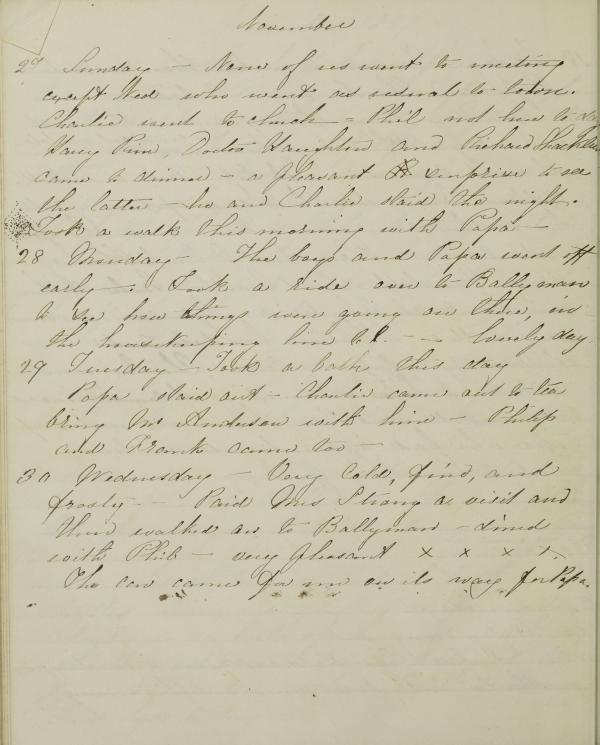 November
27 Sunday – None of us went to meeting
except Ned who went as usual to town.
Charlie went to church = Phil not here to
Harry Pim, Doctor Haughton and Richard
came to dinner – a pleasant surprise to see
the latter – he and Charlie staid the night.
Took a walk this morning with Papa –
28 Monday – The boys and Papa went off
early –. Took a ride over to Ballyman
to see how things were going on there, in
the housekeeping line &c. – – lovely day.
29 Tuesday – Took a bath this day
Papa staid out – Charlie came out to tea
bring Mr Anderson with him – Philip
and Frank came too –
30 Wednesday – Very cold, fine, and
frosty – Paid Mrs Strong a visit and
then walked on to Ballyman – dined
with Phil – very pleasant x x x x.
The car came for me on its way for Papa.